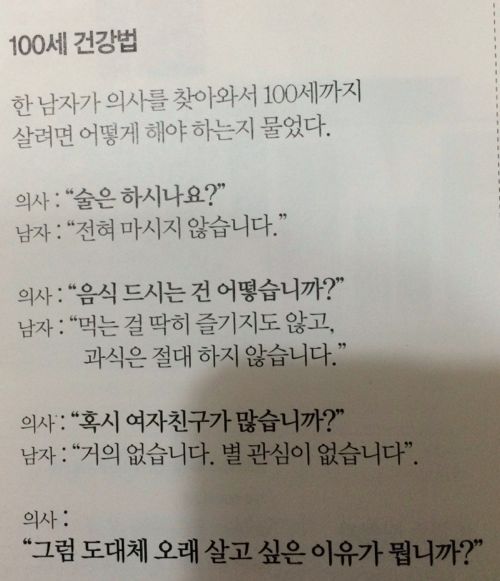 100세 건강법
한 남자가 의사를 찾아와서 100세까지
살려면 어떻게 해야 하는지 물었다.
의사 : “술은 하시나요?”
남자 : “전혀 마시지 않습니다.”
의사 : “음식 드시는 건 어떻습니까?”
남자 : “먹는 걸 딱히 즐기지도 않고,
과식은 절대 하지 않습니다.”
의사 : “혹시 여자친구가 많습니까?”
남자 : “거의 없습니다. 별 관심이 없습니다”.
의사 :
“그럼 도대체 오래 살고 싶은 이유가 뭡니까?”